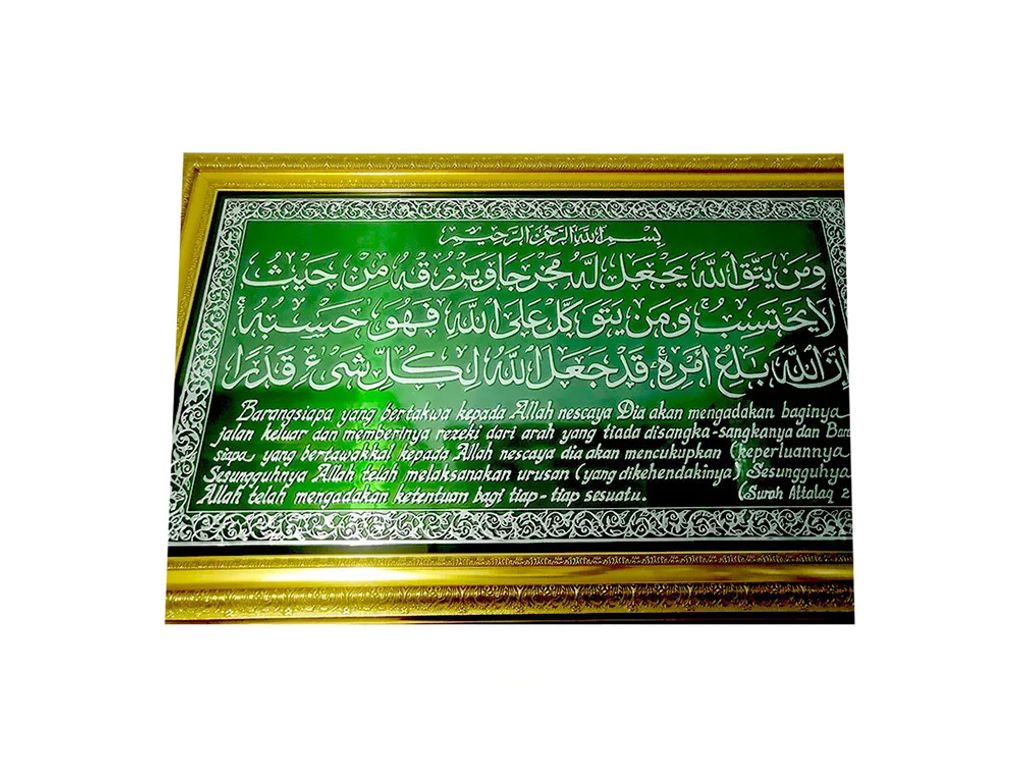 بِسْمِ اللهِ الرَّحْمَنِ الرَّحِيْمِ
وَمَنْ يَتَّقِ اللّٰهَ يَجْعَلْ لَهُ مَخْرَجًا وَيَرْزُقْهُ مِنْ حَيْثُ
لَا يَحْتَسِبُ وَمَنْ يَتَوَكَّلْ عَلَى اللّٰهِ فَهُوَ حَسْبُهُ
إِنَّ اللّٰهَ بَالِغُ أَمْرِهِ قَدْ جَعَلَ اللّٰهُ لِكُلِّ شَيْءٍ قَدْرًا
Barangsiapa yang bertakwa kepada Allah nescaya Dia akan mengadakan baginya
jalan keluar dan memberinya rezeki dari arah yang tiada disangka-sangkanya dan Bara
siapa yang bertawakkal kepada Allah nescaya dia akan mencukupkan (keperluannya
Sesungguhnya Allah telah melaksanakan urusan (yang dikehendakinya) Sesungguhya
Allah telah mengadakan ketentuan bagi tiap-tiap sesuatu. (Surah Attalaq 2